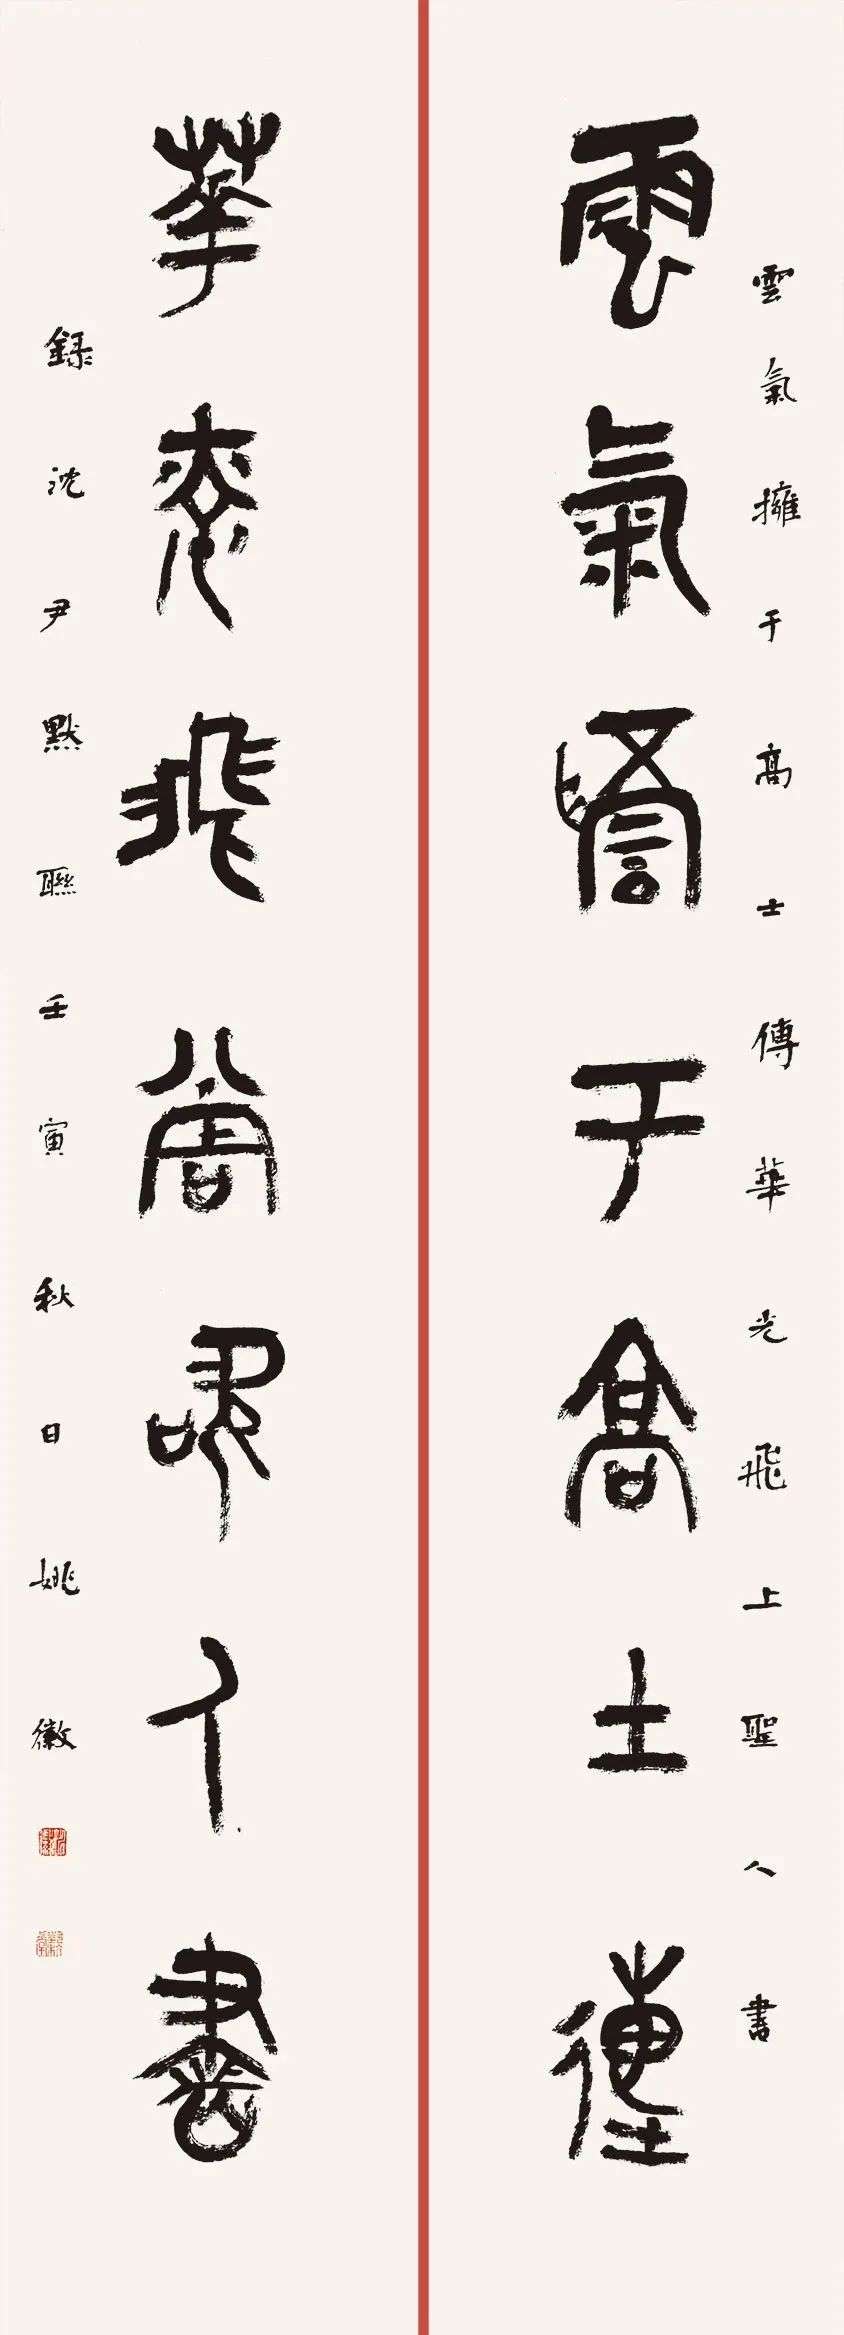 雲氣擁于高士傳華光飛上聖人書
雲氣擁于高士傳
華光飛上聖人書
録沈尹默聯壬寅秋日姚徽